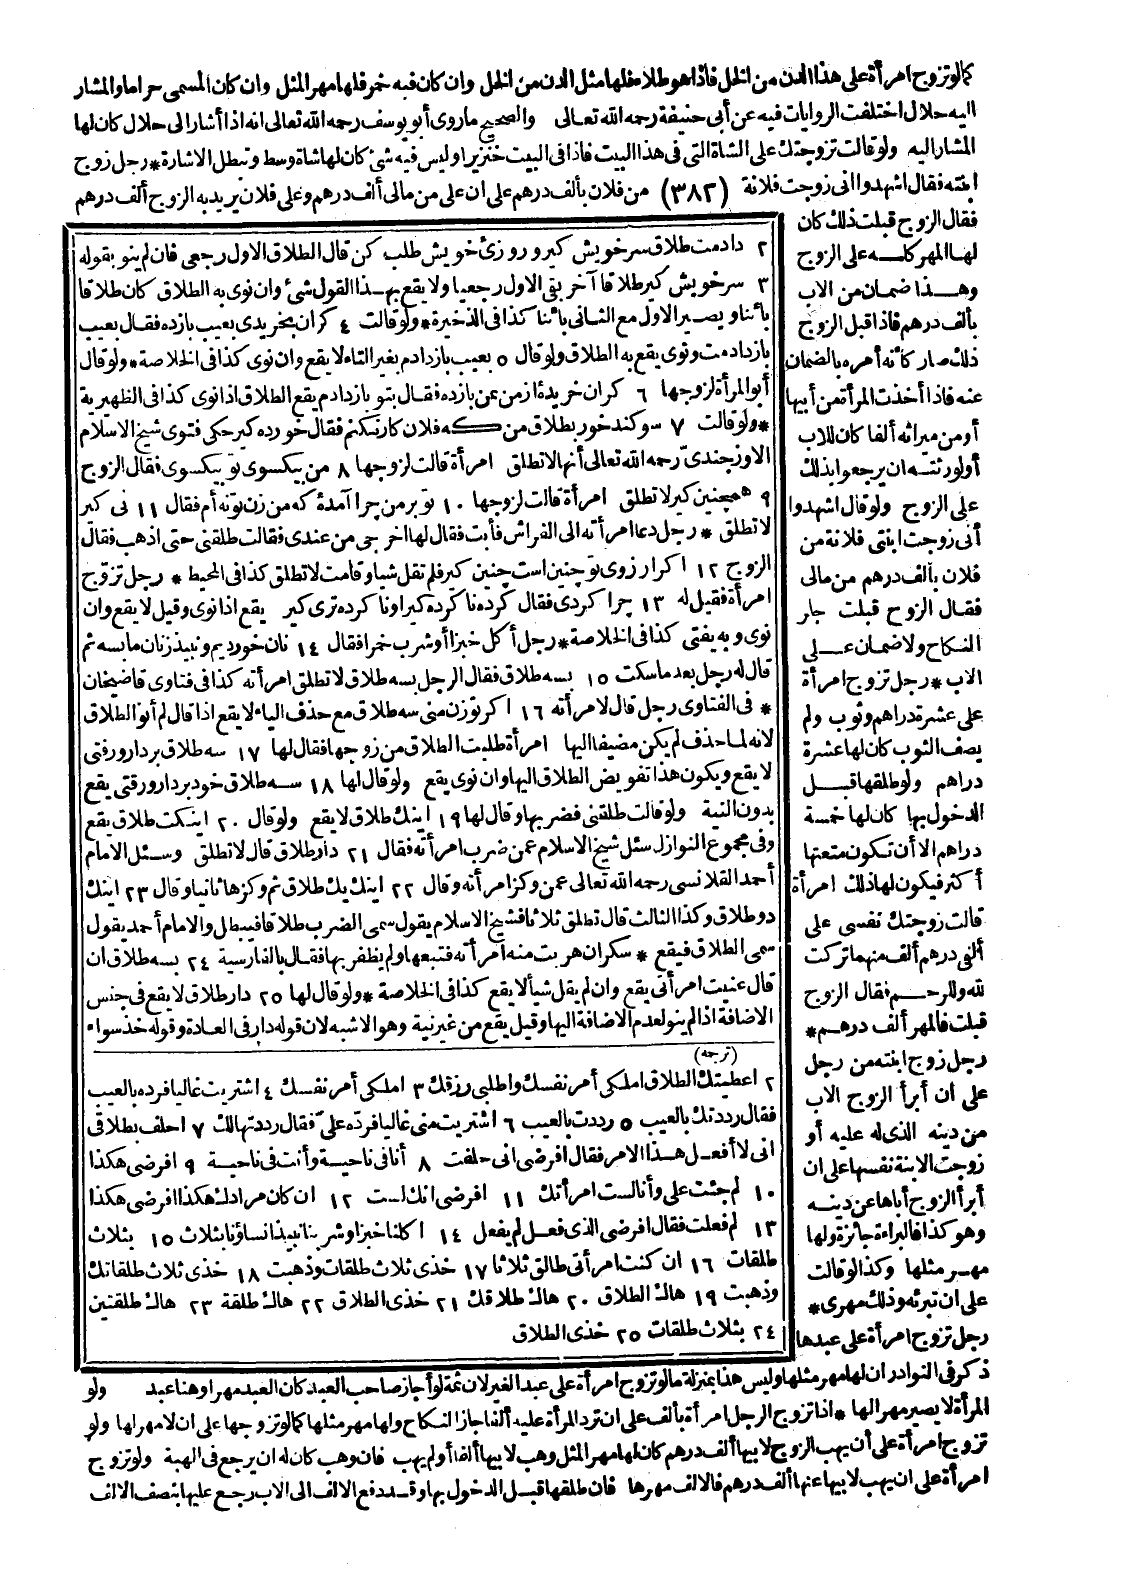 كما لو تزوج امرأة على هذا الدن من الخل فاذا هو طلاء فلها مثل الدن من الخل وان كان فيه خمر فلها مهر المثل وان كان المسمى حراما والمشار
اليه حلال اختلفت الروايات فيه عن أبى حنيفة رحمه الله تعالى والصحيح ما روى أبو يوسف رحمه الله تعالى انه اذا أشار الى حلال كان لها
المشار اليه ولو قالت تزوجتك على الشاة التى فى هذا البيت فاذا فى البيت خنزير او ليس فيه شئ كان لها شاة وسط وتبطل الاشارة * رجل زوج
ابنته فقال اشهدوا انى زوجت فلانة (٣٨٢) من فلان بألف درهم على ان على من مالى ألف درهم وعلى فلان يريد به الزوج ألف درهم
فقال الزوج قبلت ذلك كان
لها المهر كله على الزوج
وهذا ضمان من الاب
بألف درهم فاذا قبل الزوج
ذلك صار كأنه أمره بالضمان
عنه فاذا أخذت المرأة من أبيها
أو من ميراثه ألفا كان للاب
أو لورثته ان يرجعوا بذلك
على الزوج ولو قال اشهدوا
أنى زوجت ابنتى فلانة من
فلان بألف درهم من مالى
فقال الزوج قبلت جاز
النكاح ولا ضمان على
الاب * رجل تزوج امرأة
على عشرة دراهم وثوب ولم
يصف الثوب كان لها عشرة
دراهم ولو طلقها قبل
الدخول بها كان لها خمسة
دراهم الا أن تكون متعتها
أكثر فيكون لها ذلك امرأة
قالت زوجتك نفسى على
ألفى درهم ألف منهما تركت
لله وللرحم فقال الزوج
قبلت فالمهر ألف درهم *
رجل زوج ابنته من رجل
على أن أبرأ الزوج الاب
من دينه الذى له عليه أو
زوجت الابنة نفسها على ان
أبرأ الزوج أباها عن دينه
وهو كذا فالبراءة جائزة ولها
مهر مثلها وكذا لو قالت
على ان تبرئه وذلك مهرى *
رجل تزوج امرأة على عبدها
٢ دادمت طلاق سر خويش كير و روزئ خويش طلب كن قال الطلاق الاول رجعى فان لم ينو بقوله
٣ سر خويش كير طلاقا آخر بقى الاول رجعيا ولا يقع بهذا القول شئ وان نوى به الطلاق كان طلاقا
بائنا ويصير الاول مع الثانى بائنا كذا فى الذخيرة * ولو قالت ٤ كران بخريدى بعيب بازده فقال بعيب
بازدادمت ونوى يقع به الطلاق ولو قال ٥ بعيب بازدادم بغير التاء لا يقع وان نوى كذا فى الخلاصة * ولو قال
أبو المرأة لزوجها ٦ كران خريدۀ از من بمن بازده فقال بتو بازدادم يقع الطلاق اذا نوى كذا فى الظهيرية
* ولو قالت ٧ سوكند خور بطلاق من كه فلان كار نكنم فقال خورده كير حكى فتوى شيخ الاسلام
الاوزجندى رحمه الله تعالى أنها لا تطلق امرأة قالت لزوجها ٨ من بيكسوى تو بيكسوى فقال الزوج
٩ همچنين كير لا تطلق امرأة قالت لزوجها ١٠ تو بر من چرا آمدۀ كه من زن تونه أم فقال ١١ نى كير
لا تطلق * رجل دعا امرأته الى الفراش فأبت فقال لها اخرجى من عندى فقالت طلقنى حتى اذهب فقال
الزوج ١٢ اكر ارزوى تو چنين است چنين كير فلم تقل شيا وقامت لا تطلق كذا فى المحيط * رجل تزوج
امرأة فقيل له ١٣ چرا كردى فقال كرده نا كرده كير او نا كرده ترى كير يقع اذا نوى وقيل لا يقع وان
نوى وبه يفتى كذا فى الخلاصة * رجل أكل خبزا أو شرب خمرا فقال ١٤ نان خورديم ونبيذ زنان ما بسه ثم
قال له رجل بعد ما سكت ١٥ بسه طلاق فقال الرجل بسه طلاق لا تطلق امرأته كذا فى فتاوى قاضيخان
* فى الفتاوى رجل قال لامرأته ١٦ اكر تو زن منى سه طلاق مع حذف الياء لا يقع اذا قال لم أنو الطلاق
لانه لما حذف لم يكن مضيفا اليها امرأة طلبت الطلاق من زوجها فقال لها ١٧ سه طلاق بردار ورفتى
لا يقع ويكون هذا تفويض الطلاق اليها وان نوى يقع ولو قال لها ١٨ سه طلاق خود بردار ورفتى يقع
بدون النية ولو قالت طلقنى فضربها وقال لها ١٩ اينك طلاق لا يقع ولو قال ٢٠ اينكت طلاق يقع
وفى مجموع النوازل سئل شيخ الاسلام عمن ضرب امرأته فقال ٢١ دار طلاق قال لا تطلق وسئل الامام
أحمد القلانسى رحمه الله تعالى عمن وكز امرأته وقال ٢٢ اينك يك طلاق ثم وكزها ثانيا وقال ٢٣ اينك
دو طلاق وكذا الثالث قال تطلق ثلاثا فشيخ الاسلام يقول سمى الضرب طلاقا فيبطل والامام أحمد يقول
سمى الطلاق فيقع * سكران هربت منه امرأته فتبعها ولم يظفر بها فقال بالفارسية ٢٤ بسه طلاق ان
قال عنيت امرأتى يقع وان لم يقل شيأ لا يقع كذا فى الخلاصة * ولو قال لها ٢٥ دار طلاق لا يقع فى جنس
الاضافة اذا لم ينو لعدم الاضافة اليها وقيل يقع من غير نية وهو الاشبه لان قوله دار فى العادة وقوله خذ سواء
(ترجمه)
٢ اعطيتك الطلاق املكى أمر نفسك واطلبى رزقك ٣ املكى أمر نفسك ٤ اشتريت غاليا فرده بالعيب
فقال رددتك بالعيب ٥ رددت بالعيب ٦ اشتريت منى غاليا فرده على فقال رددتها لك ٧ احلف بطلاقى
انى لا أفعل هذا الامر فقال افرضى انى حلفت ٨ أنا فى ناحية وأنت فى ناحية ٩ افرضى هكذا
١٠ لم جئت على وأنا لست امرأتك ١١ افرضى انك لست ١٢ ان كان مرادك هكذا افرضى هكذا
١٣ لم فعلت فقال افرضى الذى فعل لم يفعل ١٤ اكلنا خبزا وشربنا نبيذا نساؤنا بثلاث ١٥ بثلاث
طلقات ١٦ ان كنت امرأتى طالق ثلاثا ١٧ خذى ثلاث طلقات وذهبت ١٨ خذى ثلاث طلقاتك
وذهبت ١٩ هاك الطلاق ٢٠ هاك طلاقك ٢١ خذى الطلاق ٢٢ هاك طلقة ٢٣ هاك طلقتين
٢٤ بثلاث طلقات ٢٥ خذى الطلاق
ذكر فى النوادر ان لها مهر مثلها وليس هذا بمنزلة ما لو تزوج امرأة على عبد الغير لان ثمة لو أجاز صاحب العبد كان العبد مهرا وهنا عبد ولو
المرأة لا يصير مهرا لها * اذا تزوج الرجل امرأة بألف على ان ترد المرأة عليه ألفا جاز النكاح ولها مهر مثلها كما لو تزوجها على ان لا مهر لها ولو
تزوج امرأة على أن يهب الزوج لابيها ألف درهم كان لها مهر المثل وهب لابيها ألفا أو لم يهب فان وهب كان له ان يرجع فى الهبة ولو تزوج
امرأة على ان يهب لابيها عنها ألف درهم فالالف مهرها فان طلقها قبل الدخول بها وقد دفع الالف الى الاب رجع عليها بنصف الالف